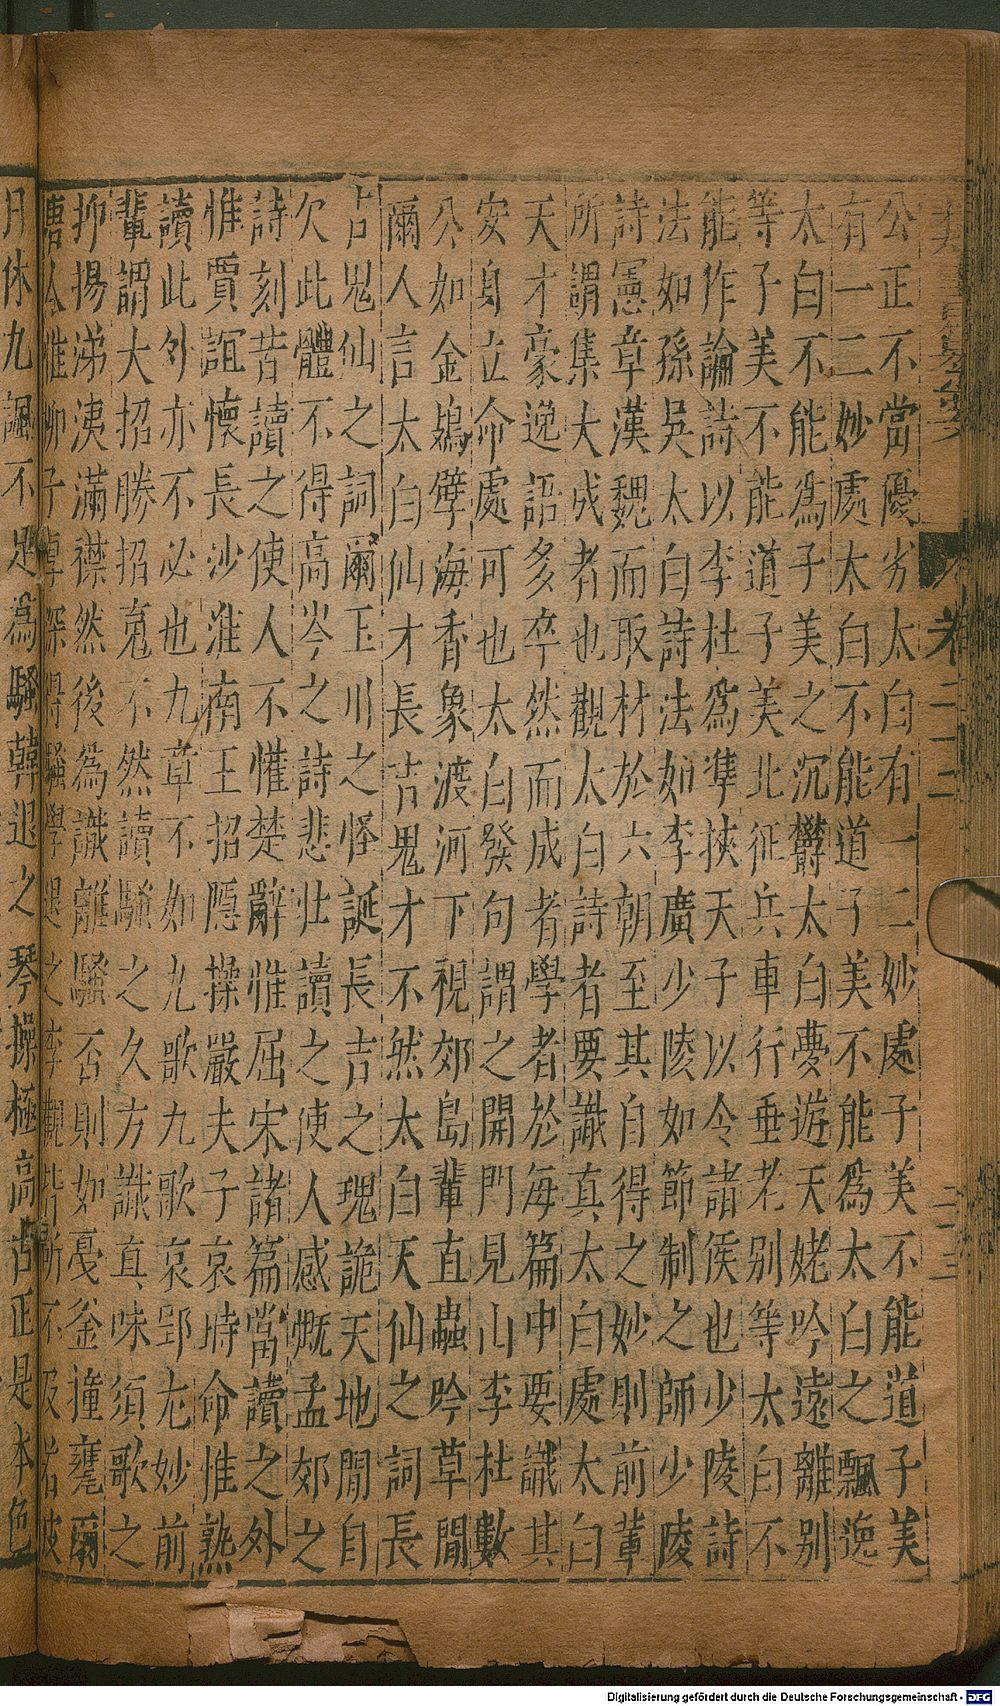 公正不當優劣太白有一二妙處子美不能道子美
有一二妙處太白不能道子美不能爲太白之飄逸
太白不能爲子美之沉鬱太白夢遊天姥吟遠離别
等子美不能道子美北征兵車行垂老别等太白不
能作論詩以李杜爲準挾天子以令諸侯也少陵詩
法如孫吳太白詩法如李廣少陵如節制之師少陵
詩憲章漢魏而取材於六朝至其自得之妙則前輩
所謂集大成者也觀太白詩者要識真太白處太白
天才豪逸語多卒然而成者學者於每篇中要識其
安身立命處可也太白發句謂之開門見山李杜數
公如金鳷擘海香象渡河下視郊島輩直蟲吟草間
爾人言太白仙才長吉鬼才不然太白天仙之詞長
吉鬼仙之詞爾玉川之怪誕長吉之瑰詭天地間自
欠此體不得高岑之詩悲壯讀之使人感慨孟郊之
詩刻苦讀之使人不懽楚辭惟屈宋諸篇當讀之外
惟賈誼懷長沙淮南王招隱操嚴夫子哀時命惟熟
讀此外亦不必也九章不如九歌九歌哀郢尤妙前
輩謂大招勝招䰟不然讀騷之久方識真味須歌之
抑揚涕洟滿襟然後爲識離騷否則如戞釜撞甕爾
唐人惟柳子厚深得騷學退之李觀皆所不及若皮
日休九諷不足爲騷韓退之琴操極高古正是本色
卷二十二
二十三
Digitalisierung gefördert durch die Deutsche Forschungsgemeinschaft - DFG